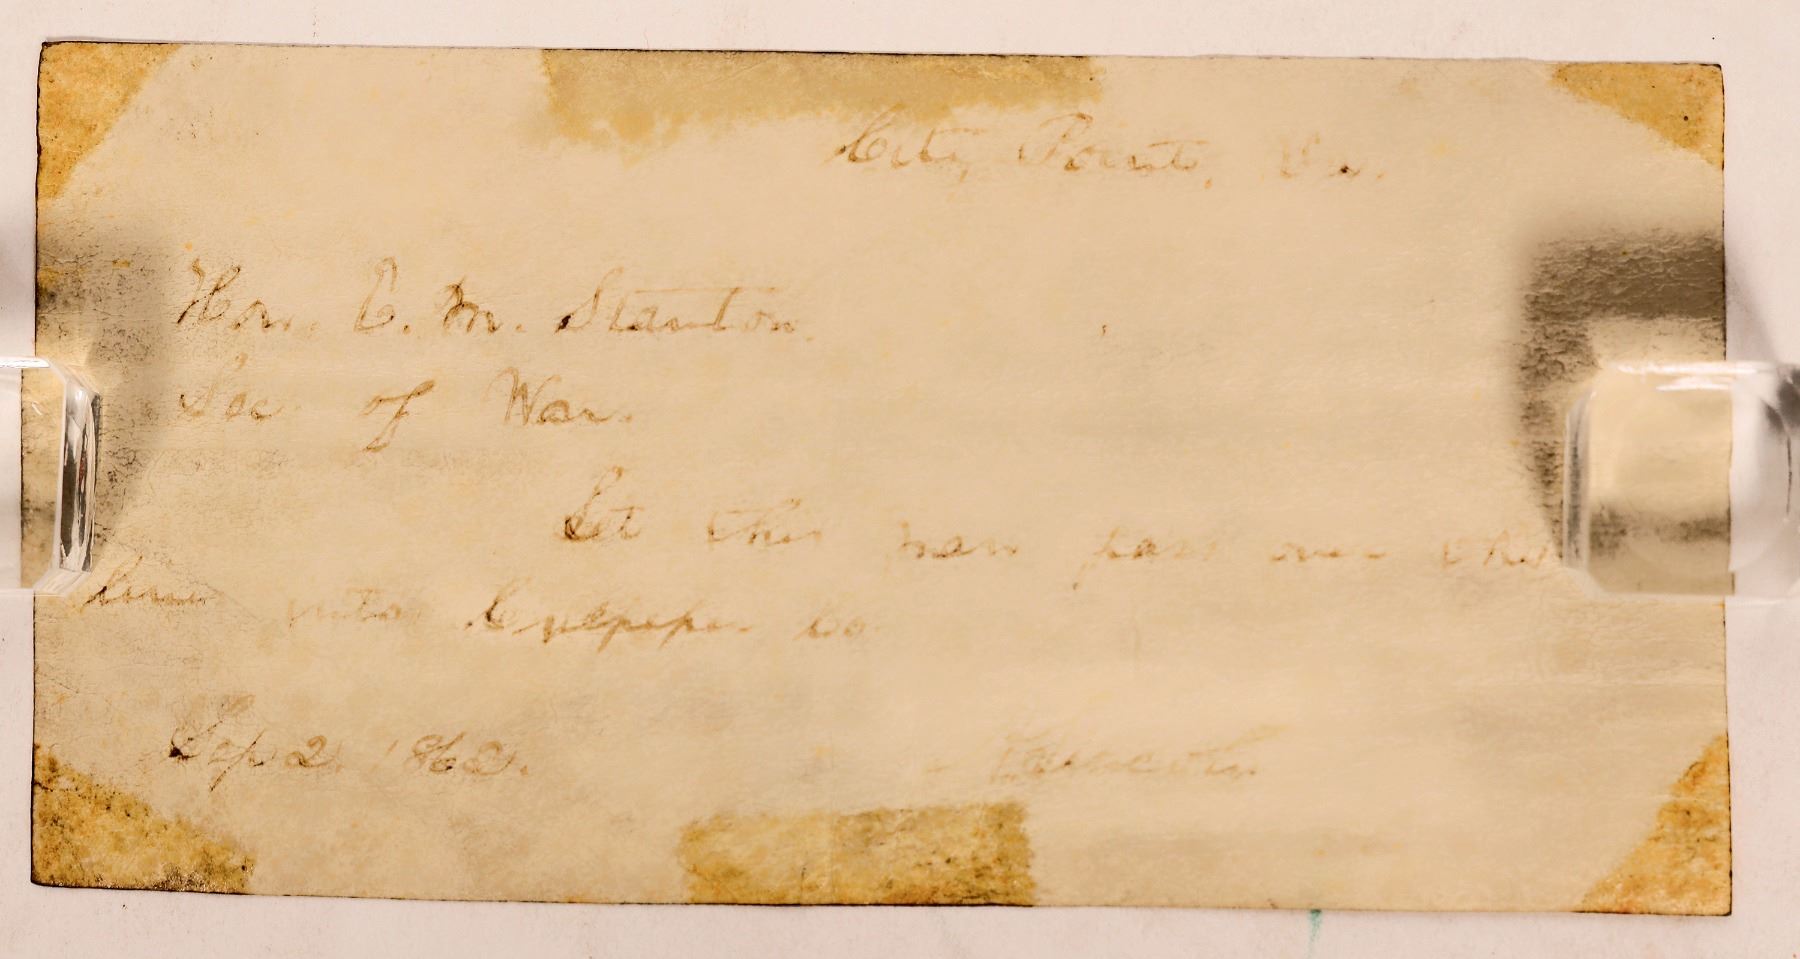 City Point, Va.
Hon. E. M. Stanton
Sec of War.
Let this man pass over the
lines into Culpeper Co.
Sep 2. 1862.
A. Lincoln